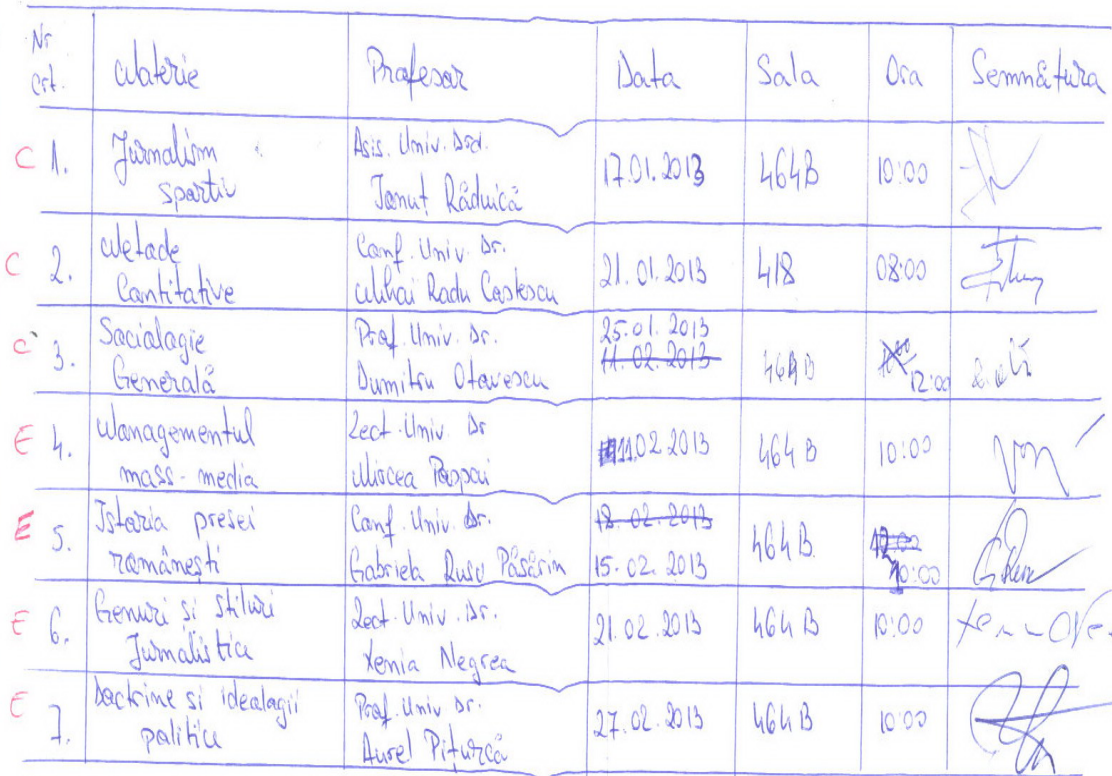 Nr Crt. Materie Profesor Data Sala Ora Semnătura
C 1. Jurnalism sportiv Asis. Univ. Drd. Ionuț Răduică 17.01.2013 464B 10:00
C 2. Metode Cantitative Conf. Univ. Dr. Mihai Radu Costescu 21.01.2013 418 08:00
C 3. Sociologie Generală Prof. Univ. Dr. Dumitru Otovescu 25.01.2013 11.02.2013 464B 12:00
E 4. Managementul mass-media Lect. Univ. Dr Mircea 11.02.2013 464B 10:00
E 5. Istoria presei românești Conf. Univ. Dr. Gabriela Rusu Păsărin 18.02.2013 15.02.2013 464B 10:00
E 6. Genuri si stiluri Jurnalistice Lect. Univ. Dr. Xenia Negrea 21.02.2013 464B 10:00
E 7. Doctrine si ideologii politice Prof. Univ Dr. Aurel Pițurcă 27.02.2013 464B 10:00